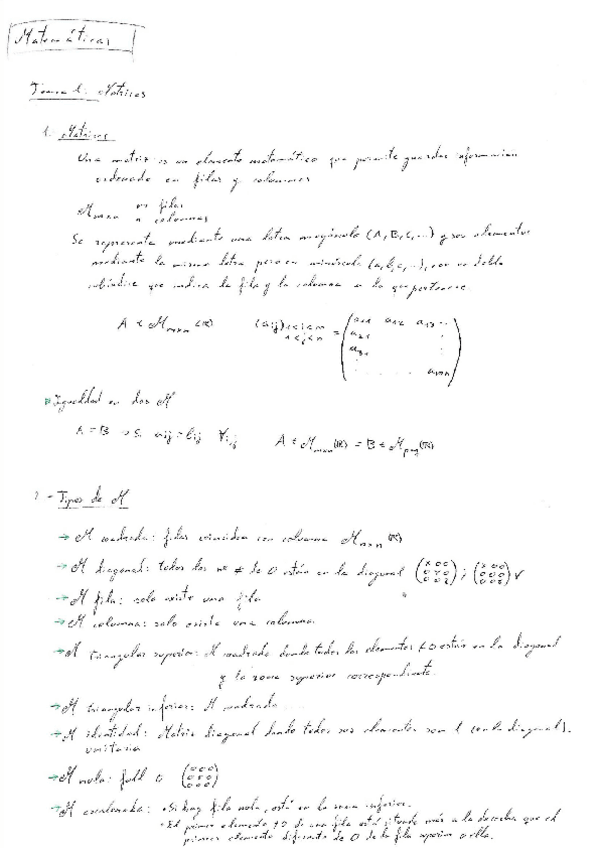 Matemáticas
Tema 1: Matrices
1. Matrices
Una matriz es un elemento matemático que permite guardar información
ordenada en filas y columnas
M mxn m filas
n columnas
Se representa mediante una letra mayúscula (A, B, C, ...) y sus elementos
mediante la misma letra pero en minúscula (a, b, c, ...), con un doble
subíndice que indica la fila y la columna a la que pertenece
A ∈ M mxn (R) (aij) 1<i<m 1<j<n = (a11 a12 a13 ...
a21
a31
... amn)
Igualdad en dos M
A = B → si aij = bij ∀ij A ∈ M mxn (R) = B ∈ M pxq (R)
2 - Tipos de M
→ M cuadrada: filas coinciden con columna M nxn (R)
→ M diagonal: todos los nº ≠ de 0 están en la diagonal
→ M fila: solo existe una fila
→ M columna: solo existe una columna.
→ M triangular superior: M cuadrada donde todos los elementos ≠ 0 están en la diagonal
y la zona superior correspondiente.
→ M triangular inferior: M cuadrada ...
→ M identidad: Matriz diagonal donde todos sus elementos son 1 (en la diagonal).
unitaria
→ M nula: full 0 (000 000 000)
→ M escalonada: • Si hay fila nula, está en la zona inferior.
• El primer elemento ≠ 0 de una fila está situado más a la derecha que el
primer elemento diferente de 0 de la fila superior a ella.